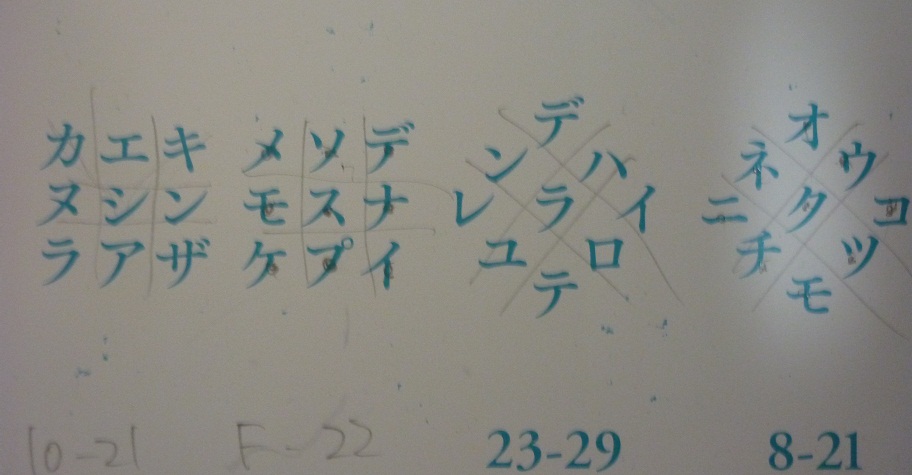 カエキ
ヌシン
ラアザ
メソデ
モスナ
ケプイ
デ
ンハ
レライ
ユロ
テ
オ
ネウ
ニタコ
チツ
モ
10-21
F-22
23-29
8-21